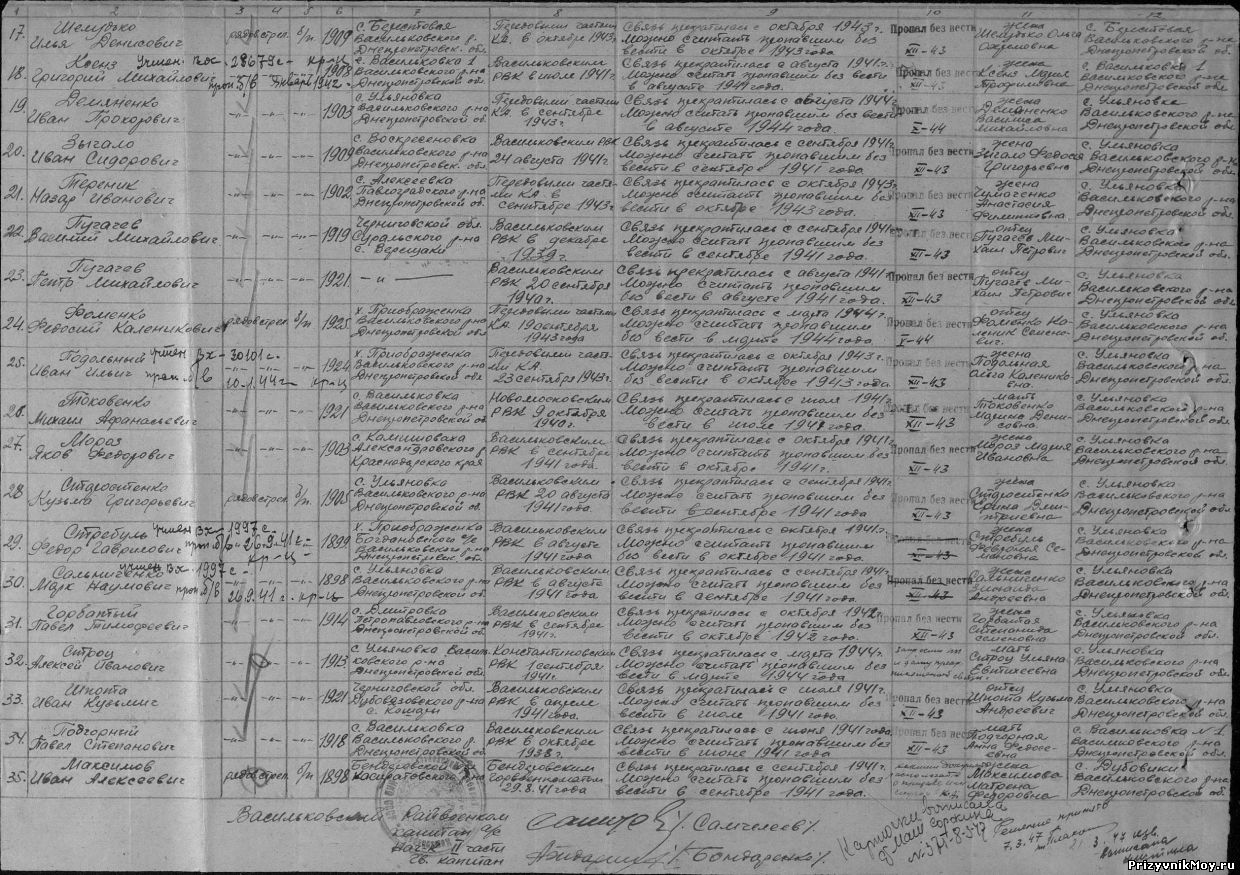 1 2 3 4 5 6 7 8 9 10 11 12
17. Шемудько Илья Денисович рядов стрел. б/п 1909 с. Берестовая Васильковского р. Днепропетровск. обл. Передовыми частями КА. в октябре 1943г. Связь прекратилась с октября 1943г. Можно считать пропавшим без вести в октябре 1943 года Пропал без вести XII-43 жена Шемудько Ольга с. Берестовая Васильковского р-на Днепропетровской обл.
18. Григорий Михайлович учтен 28679с кр-ц 1908 с. Васильковка 1 Васильковского р-на Днепропетровской обл Васильковским РВК в июле 1941г. Связь прекратилась с августа 1941г. Можно считать пропавшим без вести в августе 1941 года. Пропал без вести XII-43 жена Мария Трофимовна с. Васильковка 1 Васильковского р-на Днепропетровской обл
19. Демяненко Иван Прокорович 1903 с. Ульяновка Васильковского р-на Днепропетровской обл Передовыми частями КА. в сентябре 1943г. Связь прекратилась с августа 1944г. Можно считать пропавшим без вести в августе 1944 года. Пропал без вести X-44 жена Демяненко Василиса Михайловна с. Ульяновка Васильковского р-на Днепропетровской обл.
20. Зыгало Иван Сидорович 1909 с. Воскресеновка Васильковского р-на Днепропетровск. обл. Васильковским РВК 24 августа 1941г. Связь прекратилась с сентября 1941г Можно считать пропавшим без вести в сентябре 1941 года. Пропал без вести XII-43 жена Зыгало Федося Григорьевна с. Ульяновка Васильковского р-на Днепропетровской обл
21. Тереник Назар Иванович 1902 с. Алексеевка Павлоградского р-на Днепропетровской об. Передовыми частями КА в Сентябре 1943г. Связь прекратилась с октября 1943г. Можно считать пропавшим без вести в октябре 1943 года. Пропал без вести XII-43 жена Анастасия Филипповна с. Ульяновка Васильковского р-на Днепропетровской обл
22. Пугачев Василий Михайлович 1919 Черниговской обл. р-на Васильковским РВК в декабре 1939г. Связь прекратилась с сентября 1941г. Можно считать пропавшим без вести в сентябре 1941 года. Пропал без вести XII-43 отец Пугачев Михаил Петрович с. Ульяновка Васильковского р-на Днепропетровской обл.
23. Пугачев Петр Михайлович 1921 -„- Васильковским РВК 20 сентября 1940г. Связь прекратилась с августа 1941г. Можно считать пропавшим без вести в августе 1941 года. Пропал без вести XII-43 отец Пугачев Михаил Петрович с. Ульяновка Васильковского р-на Днепропетровской обл
24. Фоменко Федосий Каленикович рядов стрел. б/п 1925 х. Приображенка Васильковского р-на Днепропетровской обл Передовыми частями КА. 19 октября 1943 года Связь прекратилась с марта 1944г. Можно считать пропавшим без вести в марте 1944 года. Пропал без вести V-44 отец Фоменко Каленик с. Ульяновка Васильковского р-на Днепропетровской обл.
25. Подольный Иван Ильич учтен Вх-30101с. проп. б/в 10.1.44г кр-ц 1924 х. Приображенка Васильковского р-на Днепропетровской обл Передовыми частями КА 23 сентября 1943г. Связь прекратилась с октября 1943г. Можно считать пропавшим без вести в октябре 1943 года. Пропал без вести XII-43 жена Подольная Ольга Калениковна. с. Ульяновка Васильковского р-на Днепропетровской обл.
26. Токовенко Михаил Афанасьевич 1921 с. Васильковка Васильковского р-на Днепропетровской об Новомосковским РВК 9 октября 1940г. Связь прекратилась с июля 1941г. Можно считать пропавшим без вести в июле 1941 года. Пропал без вести XII-43 мать Токовенко Марина Денисовна с. Ульяновка Васильковского р-на Днепропетровской обл.
27. Мороз Яков Федорович 1903 с. Камишоваха Александровского р Краснодарского края Васильковским РВК в сентябре 1941 года. Связь прекратилась с октября 1941г. Можно считать пропавшим без вести в октябре 1941г. Пропал без вести XII-43 жена Мороз Мария Ивановна с. Ульяновка Васильковского р-на Днепропетровской обл.
28. Кузьма Григорьевич рядов стрел. б/п 1905 с. Ульяновка Васильковского р-на Днепропетровской обл. Васильковским РВК 20 августа 1941г. Связь прекратилась с сентября 1941г. Можно считать пропавшим без вести в сентябре 1941 года. Пропал без вести XII-43 жена с. Ульяновка Васильковского р-на Днепропетровской обл
29. Стребуль Федор Гаврилович учтен Вх-1997с. проп. б/в-26.9.41г.- кр-ц- 1899 х. Приображенка Богдановского с/с Васильковского р-на Днепропетровск. обл Васильковским РВК в августе 1941 года Связь прекратилась с октября 1941г. Можно считать пропавшим без вести в октябре 1941 года XII-43 жена Стребуль Феврония Семановна с. Ульяновка Васильковского р-на Днепропетровской обл.
30. Сальниченко Марк Наумович учтен Вх. 1997с- проп б/в 26.9.41г. кр-ц 1898 с. Ульяновка Васильковского р-на Днепропетровской обл. Васильковским РВК в августе 1941 года Связь прекратилась с сентября 1941г. Можно считать пропавшим без вести в сентябре 1941 года. Пропал без вести XII-43 жена Сальниченко Зинаида Андреевна с. Ульяновка Васильковского р-на Днепропетровской обл.
31. Горбатый Павел Тимофеевич 1914 с. Дмитровка Петропавловского р-на Днепропетровской об. Васильковским РВК в сентябре 1941г. Связь прекратилась с октября 1942г. Можно считать пропавшим без вести в октябре 1942 года. Пропал без вести XII-43 жена Горбатая Степанида Семеновна с. Ульяновка Васильковского р-на Днепропетровской обл
32. Строц Алексей Иванович 1913 с. Ульяновка Васильковского р-на Днепропетровской обл. Константиновским РВК 1 сентября 1941г. Связь прекратилась с марта 1944г. Можно считать пропавшим без вести в марте 1944 года мать Строц Ульяна Евтихеевна с. Ульяновка Васильковского р-на Днепропетровской обл.
33. Шкопта Иван Кузьмич 1921 Черниговской обл. р-на с. Кошары Васильковским РВК в апреле 1941 года. Связь прекратилась с июля 1941г. Можно считать пропавшим без вести в июле 1941 года. Пропал без вести XII-43 отец Шкопта Кузьма Андреевич с. Ульяновка Васильковского р-на Днепропетровской обл.
34. Подгорный Павел Степанович 1918 с. Васильковка Васильковского р. Днепропетровской об. Васильковским РВК в октябре 1938г. Связь прекратилась с июня 1941 года. Можно считать пропавшим без вести в июне 1941 года. Пропал без вести XII-43 мать Подгорная Анна Федосеевна с. Васильковка №1 Васильковского р-на Днепропетровской обл
35. Максимов Иван Алексеевич рядов стрел. б/п 1898 Бендеровской Бендеровским горвоенкоматом 29.8.41 года Связь прекратилась с сентября 1941г. Можно считать пропавшим без вести в сентябре 1941 года. жена Максимова Матрена Федоровна с. Дубовики Васильковского р-на Днепропетровской обл.
Васильковский Райвоенком
капитан а/с /Самчелеев/
Нач-к II части
гв. капитан /Бондаренко/
Карточки выписала
7.3.47
21.3.47
PrizyvnikMoy.ru